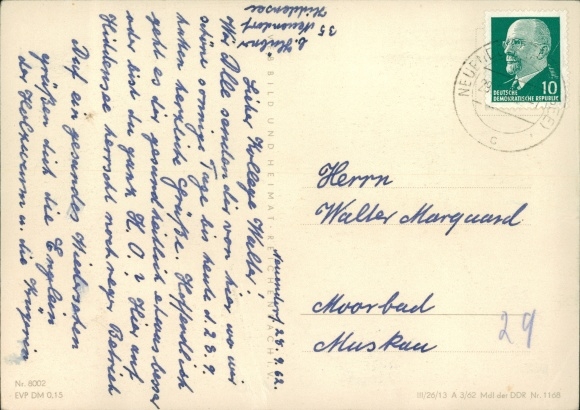 b. Hübner
35
Neuendorf
Hiddensee
Neuendorf 28.9.62.
Lieber Kollege Walter!
Wir Alle senden dir von hier wo wir
schöne sonnige Tage bis heute d. 28.9.
haben herzliche Grüße. Hoffendlich
geht es dir gesundheitlich etwas besser
oder bist du ganz K.O.? Hier auf
Hiddensee herrscht noch reger Betrieb
Auf ein gesundes Wiedersehen
grüßen dich die Englein
der Holzwurm u. die
VEB BILD UND HEIMAT REICHENBACH I. V.
DEUTSCHE
DEMOKRATISCHE REPUBLIK
10
Herrn
Walter Marquard
Moorbad
Muskau
29
Nr. 8002
EVP DM 0,15
III/26/13 A 3/62 MdI der DDR Nr. 1168